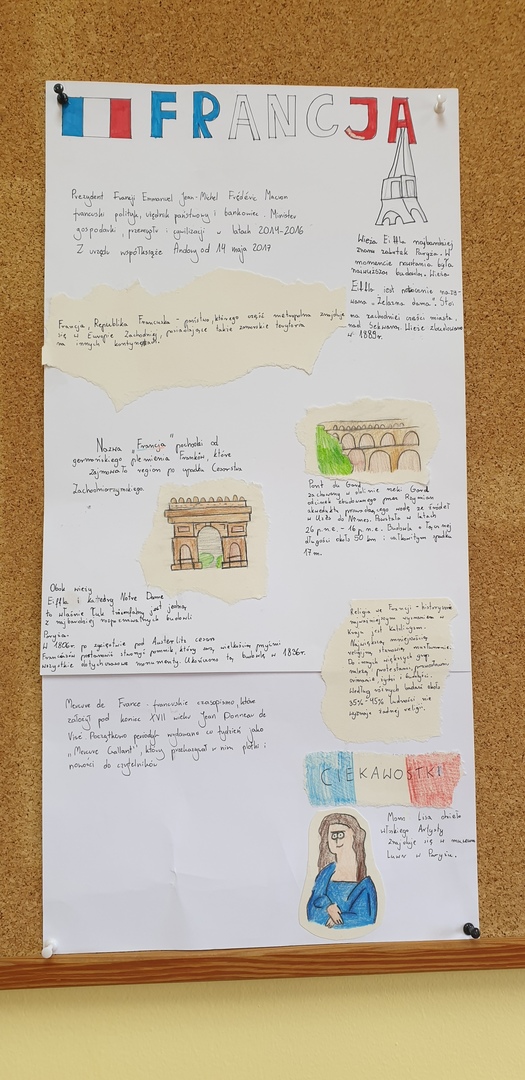 FRANCJA
Prezydent Francji Emmanuel Jean-Michel Frédéric Macron
francuski polityk, urzędnik państwowy i bankowiec. Minister
gospodarki, przemysłu i cyfryzacji w latach 2014-2016
Z urzędu współksiążę Andory od 14 maja 2017
Wieża Eiffla najbardziej
znany zabytek Paryża. W
momencie powstania była
najwyższą budowlą. Wieża
Eiffla jest potocznie nazy-
wana „Żelazna dama". Stoi
na zachodniej części miasta,
nad Sekwaną. Wieżę zbudowano
w 1889r.
Francja, Republika Francuska - państwo, którego część metropolitalna znajduje
się w Europie Zachodniej, posiadające także zamorskie terytoria
na innych kontynentach
Nazwa „Francja" pochodzi od
germańskiego plemienia Franków, które
zajmowało region po upadku Cesarstwa
Zachodniorzymskiego.
Pont du Gard
zachowany w dolinie rzeki Gard
odcinek zbudowanego przez Rzymian
akweduktu prowadzącego wodę ze źródeł
w Uzès do Nîmes. Powstało w latach
26 p.n.e. - 16 p.n.e. Budowla o łącznej
długości około 50 km i całkowitym spadku
17 m.
Obok wieży
Eiffla i katedry Notre Dame
to właśnie Łuk triumfalny jest jedną
z najbardziej rozpoznawalnych budowli
Paryża.
W 1806r po zwycięstwie pod Austerlitz cesarz
Francuzów postanowił stworzyć pomnik, który swą wielkością przyćmi
wszystkie dotychczasowe monumenty. Ukończono tą budowlę w 1836r.
Religia we Francji - historycznie
najważniejszym wyznaniem w
kraju jest katolicyzm.
Największą mniejszością
religijną stanowią muzułmanie.
Do innych większych grup
należą protestanci, prawosławni
ormianie, żydzi i buddyści.
Według różnych badań około
35%-45% ludności nie
wyznaje żadnej religii.
Mercure de France - francuskie czasopismo, które
założył pod koniec XVII wieku Jean Donneau de
Visé Początkowo periodyk wydawano co tydzień jako
„Mercure Gallant", który przekazywał w nim plotki i
nowości do czytelników
CIEKAWOSTKI
Mona Lisa dzieło
włoskiego Artysty
znajduje się w muzeum
Luwr w Paryżu.